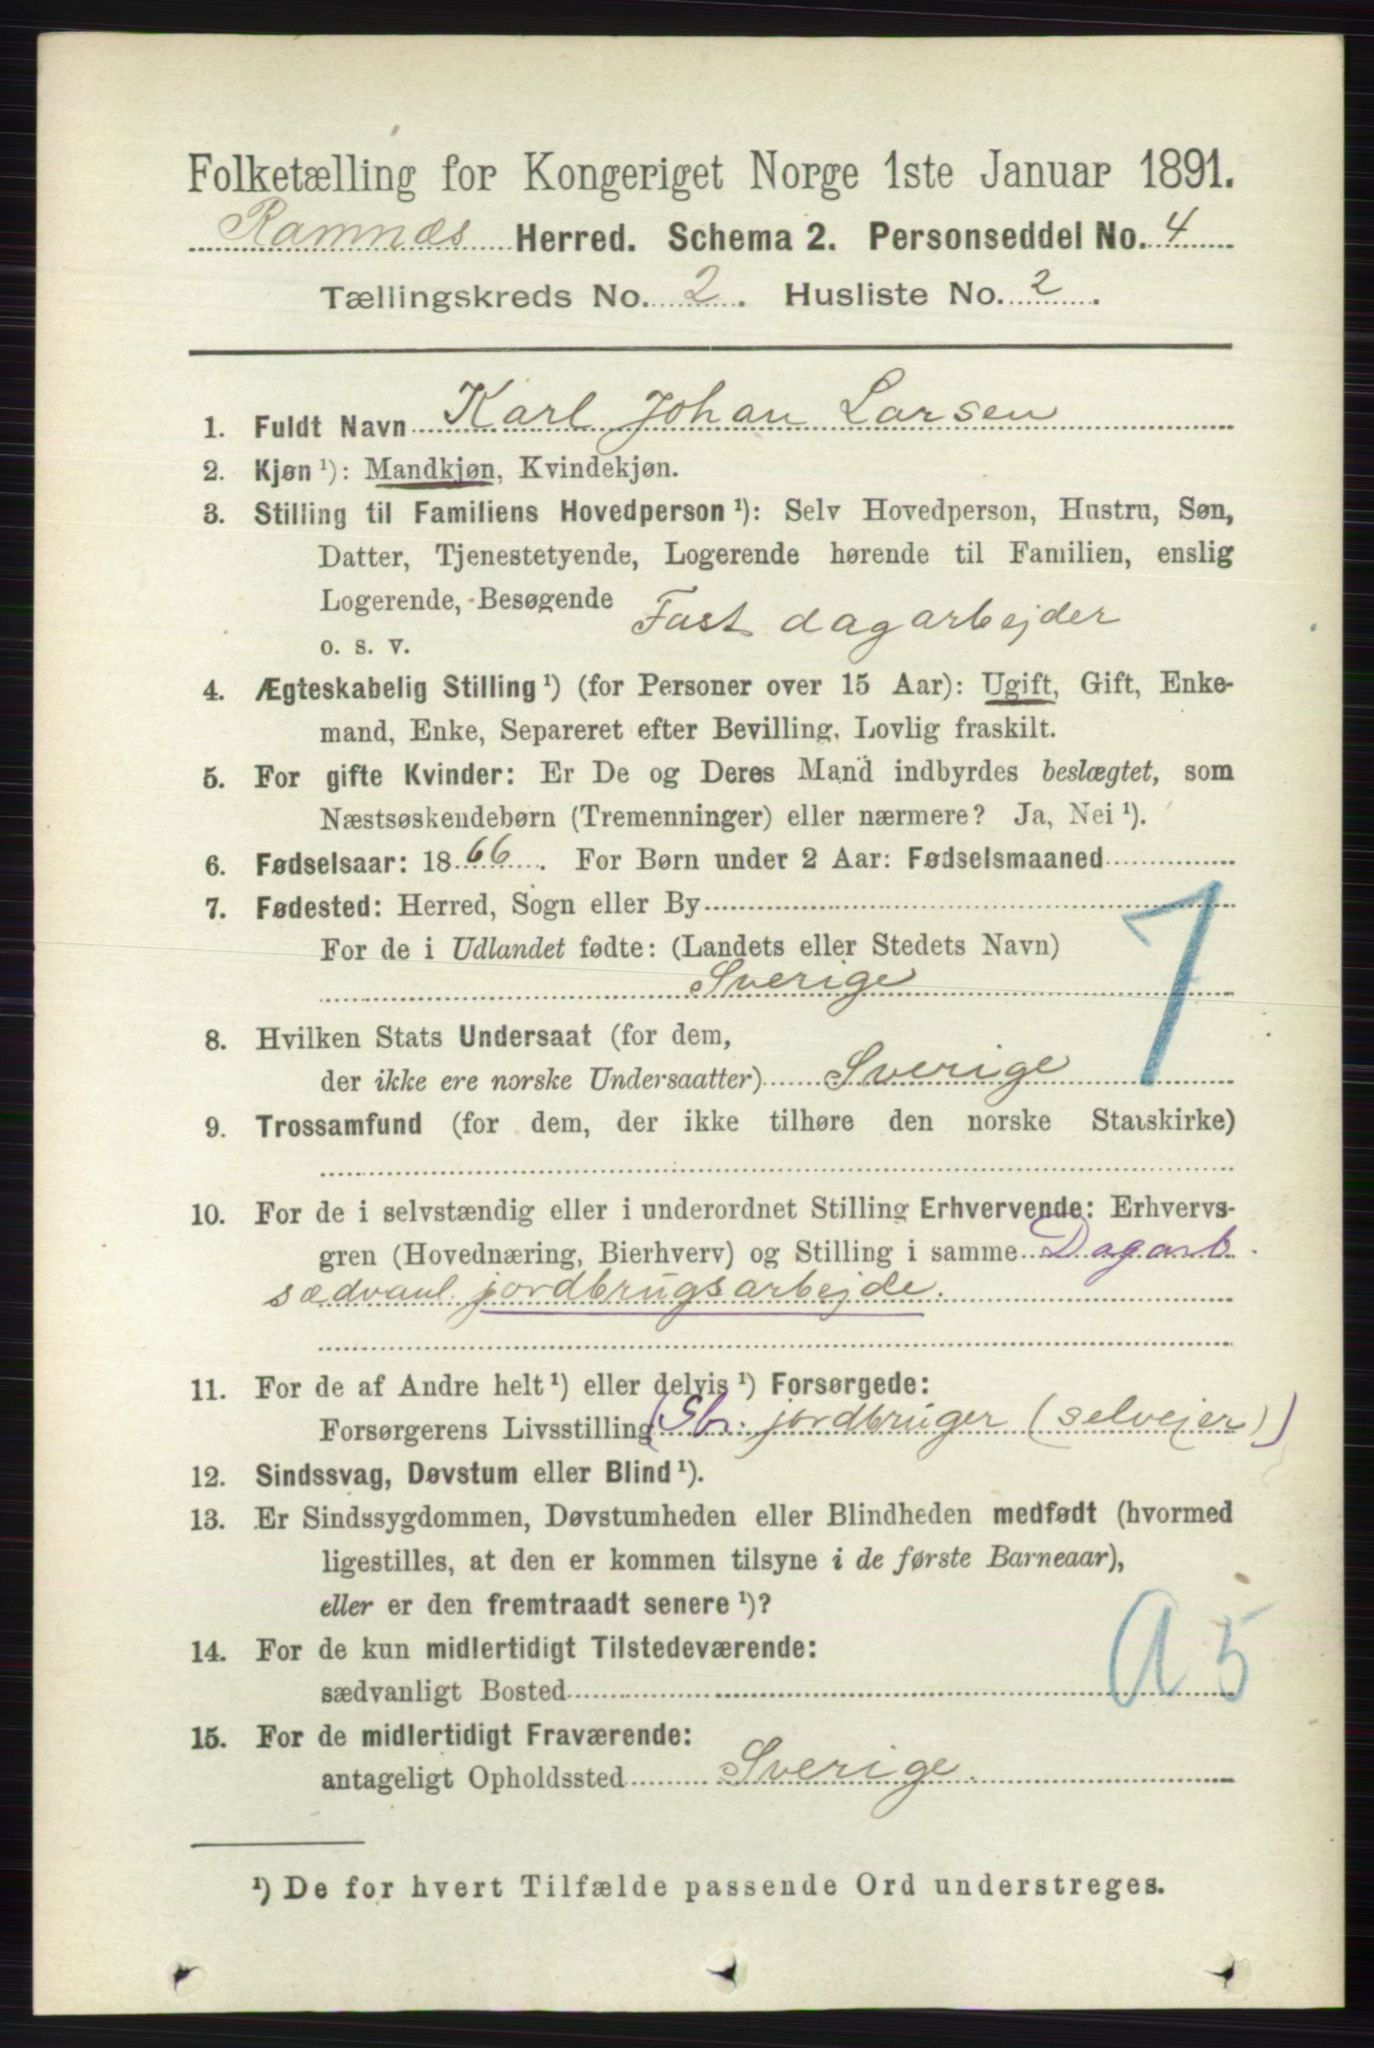 Folketælling for Kongeriget Norge 1ste Januar 1891.
Ramnæs Herred. Schema 2. Personseddel No. 4
Tællingskreds No. 2. Husliste No. 2.
1. Fuldt Navn Karl Johan Larsen
2. Kjøn ¹): Mandkjøn, Kvindekjøn.
3. Stilling til Familiens Hovedperson ¹): Selv Hovedperson, Hustru, Søn,
Datter, Tjenestetyende, Logerende hørende til Familien, enslig
Logerende, Besøgende
o. s. v. Fast dagarbejder
4. Ægteskabelig Stilling ¹) (for Personer over 15 Aar): Ugift, Gift, Enke-
mand, Enke, Separeret efter Bevilling, Lovlig fraskilt.
5. For gifte Kvinder: Er De og Deres Mand indbyrdes beslægtet, som
Næstsøskendebørn (Tremenninger) eller nærmere? Ja, Nei ¹).
6. Fødselsaar: 1866. For Børn under 2 Aar: Fødselsmaaned
7. Fødested: Herred, Sogn eller By
For de i Udlandet fødte: (Landets eller Stedets Navn)
Sverige
7
8. Hvilken Stats Undersaat (for dem,
der ikke ere norske Undersaatter) Sverige
9. Trossamfund (for dem, der ikke tilhøre den norske Statskirke)
10. For de i selvstændig eller i underordnet Stilling Erhvervende: Erhvervs-
gren (Hovednæring, Bierhverv) og Stilling i samme Dagarb.
sædvanl. jordbrugsarbejde.
11. For de af Andre helt ¹) eller delvis ¹) Forsørgede:
Forsørgerens Livsstilling (Sbr. jordbruger (selvejer))
12. Sindssvag, Døvstum eller Blind ¹).
13. Er Sindssygdommen, Døvstumheden eller Blindheden medfødt (hvormed
ligestilles, at den er kommen tilsyne i de første Barneaar),
eller er den fremtraadt senere ¹)?
14. For de kun midlertidigt Tilstedeværende:
sædvanligt Bosted
a 5
15. For de midlertidigt Fraværende:
antageligt Opholdssted Sverige.
¹) De for hvert Tilfælde passende Ord understreges.